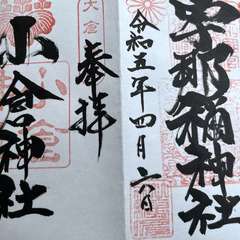 宇那禰神社
令和五年四月六日
奉拝
大倉
小倉神社